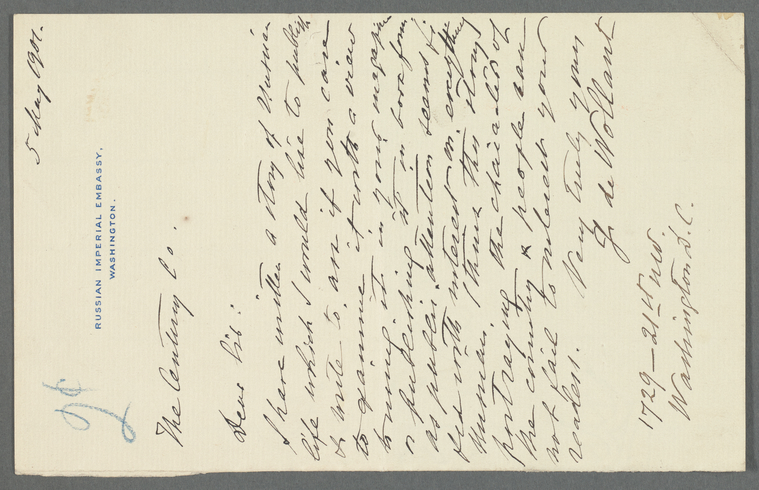 5 May 1901.
RUSSIAN IMPERIAL EMBASSY,
WASHINGTON.
The Century Co.
Dear Sir:
I have written a story of Russian
life which I would like to publish
& write to ask if you care
to examine it with a view
to using it in your magazine
or publishing it in book form
as public attention seems fi
xed with interest on everything
Russian. I think this story
portraying the character of
the country & people can
not fail to interest your
readers. Very truly yours
G de Wollant
1729-21st N.W.
Washington D.C.